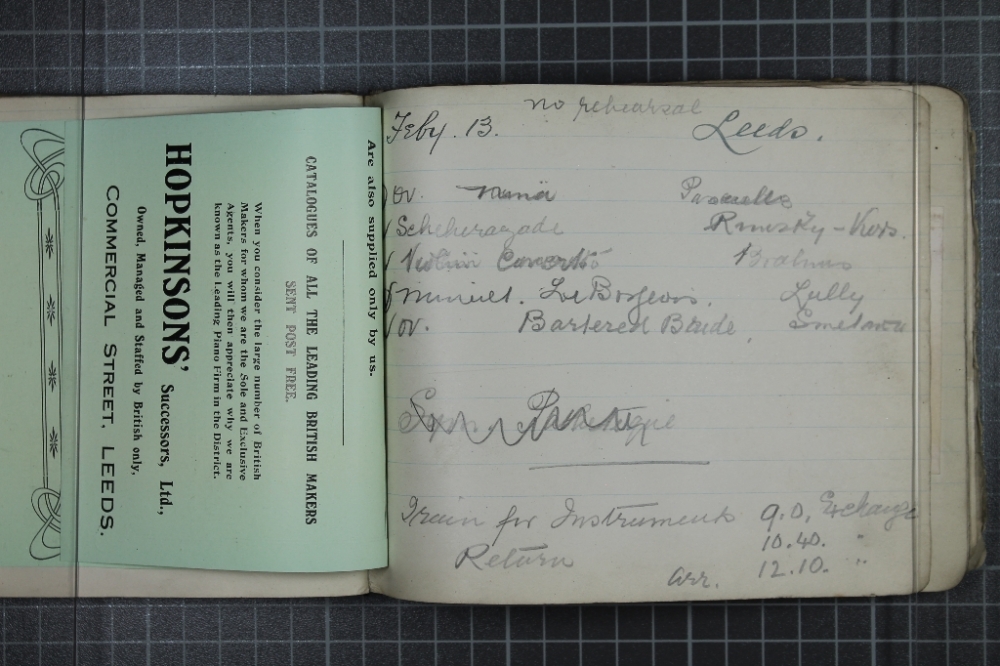 Are also supplied only by us.
CATALOGUES OF ALL THE LEADING BRITISH MAKERS
SENT POST FREE.
When you consider the large number of British
Makers for whom we are the Sole and Exclusive
Agents, you will then appreciate why we are
known as the Leading Piano Firm in the District.
HOPKINSONS' Successors, Ltd.,
Owned, Managed and Staffed by British only,
COMMERCIAL STREET, LEEDS.
no rehearsal
Feby. 13. Leeds.
Ov.
Scheherazade Rimsky-Kors.
Violin Concerto Brahms
Minuet. Lully
Ov. Bartered Bride, Smetana
Sym. Pathetique
Train for Instruments 9.0. Exchange
10.40. "
Return arr. 12.10. "